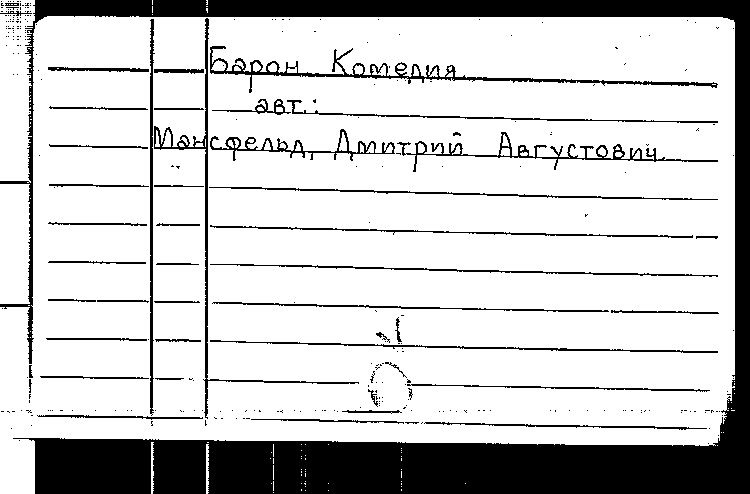 Барон Комедия
авт.:
Мансфельд, Дмитрий Августович